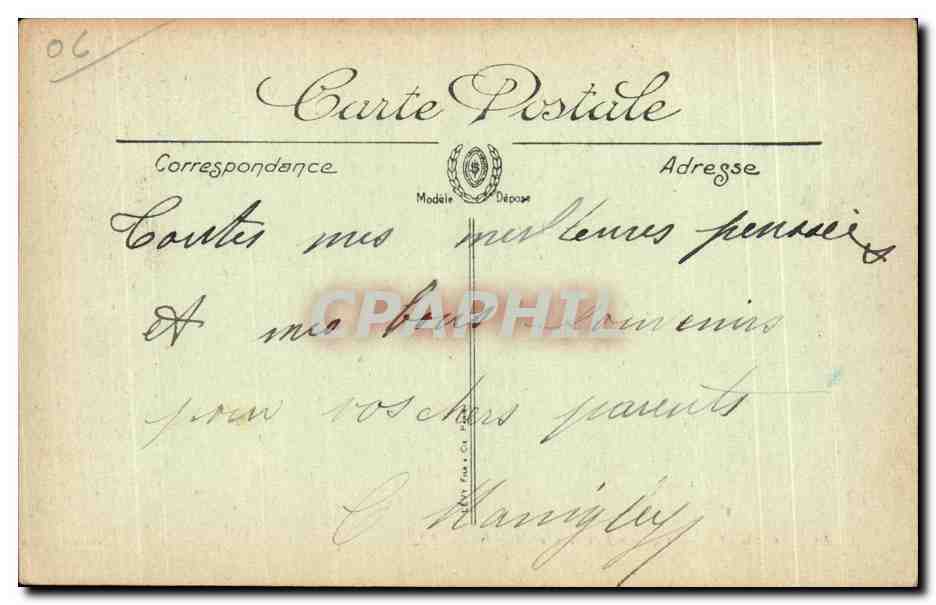 06
Carte Postale
Correspondance
Adresse
Modèle Déposé
Toutes mes meilleures pensées
et mes bons souvenirs
pour vos chers parents
C
LÉVY Fils & Cie
CPAPHIL